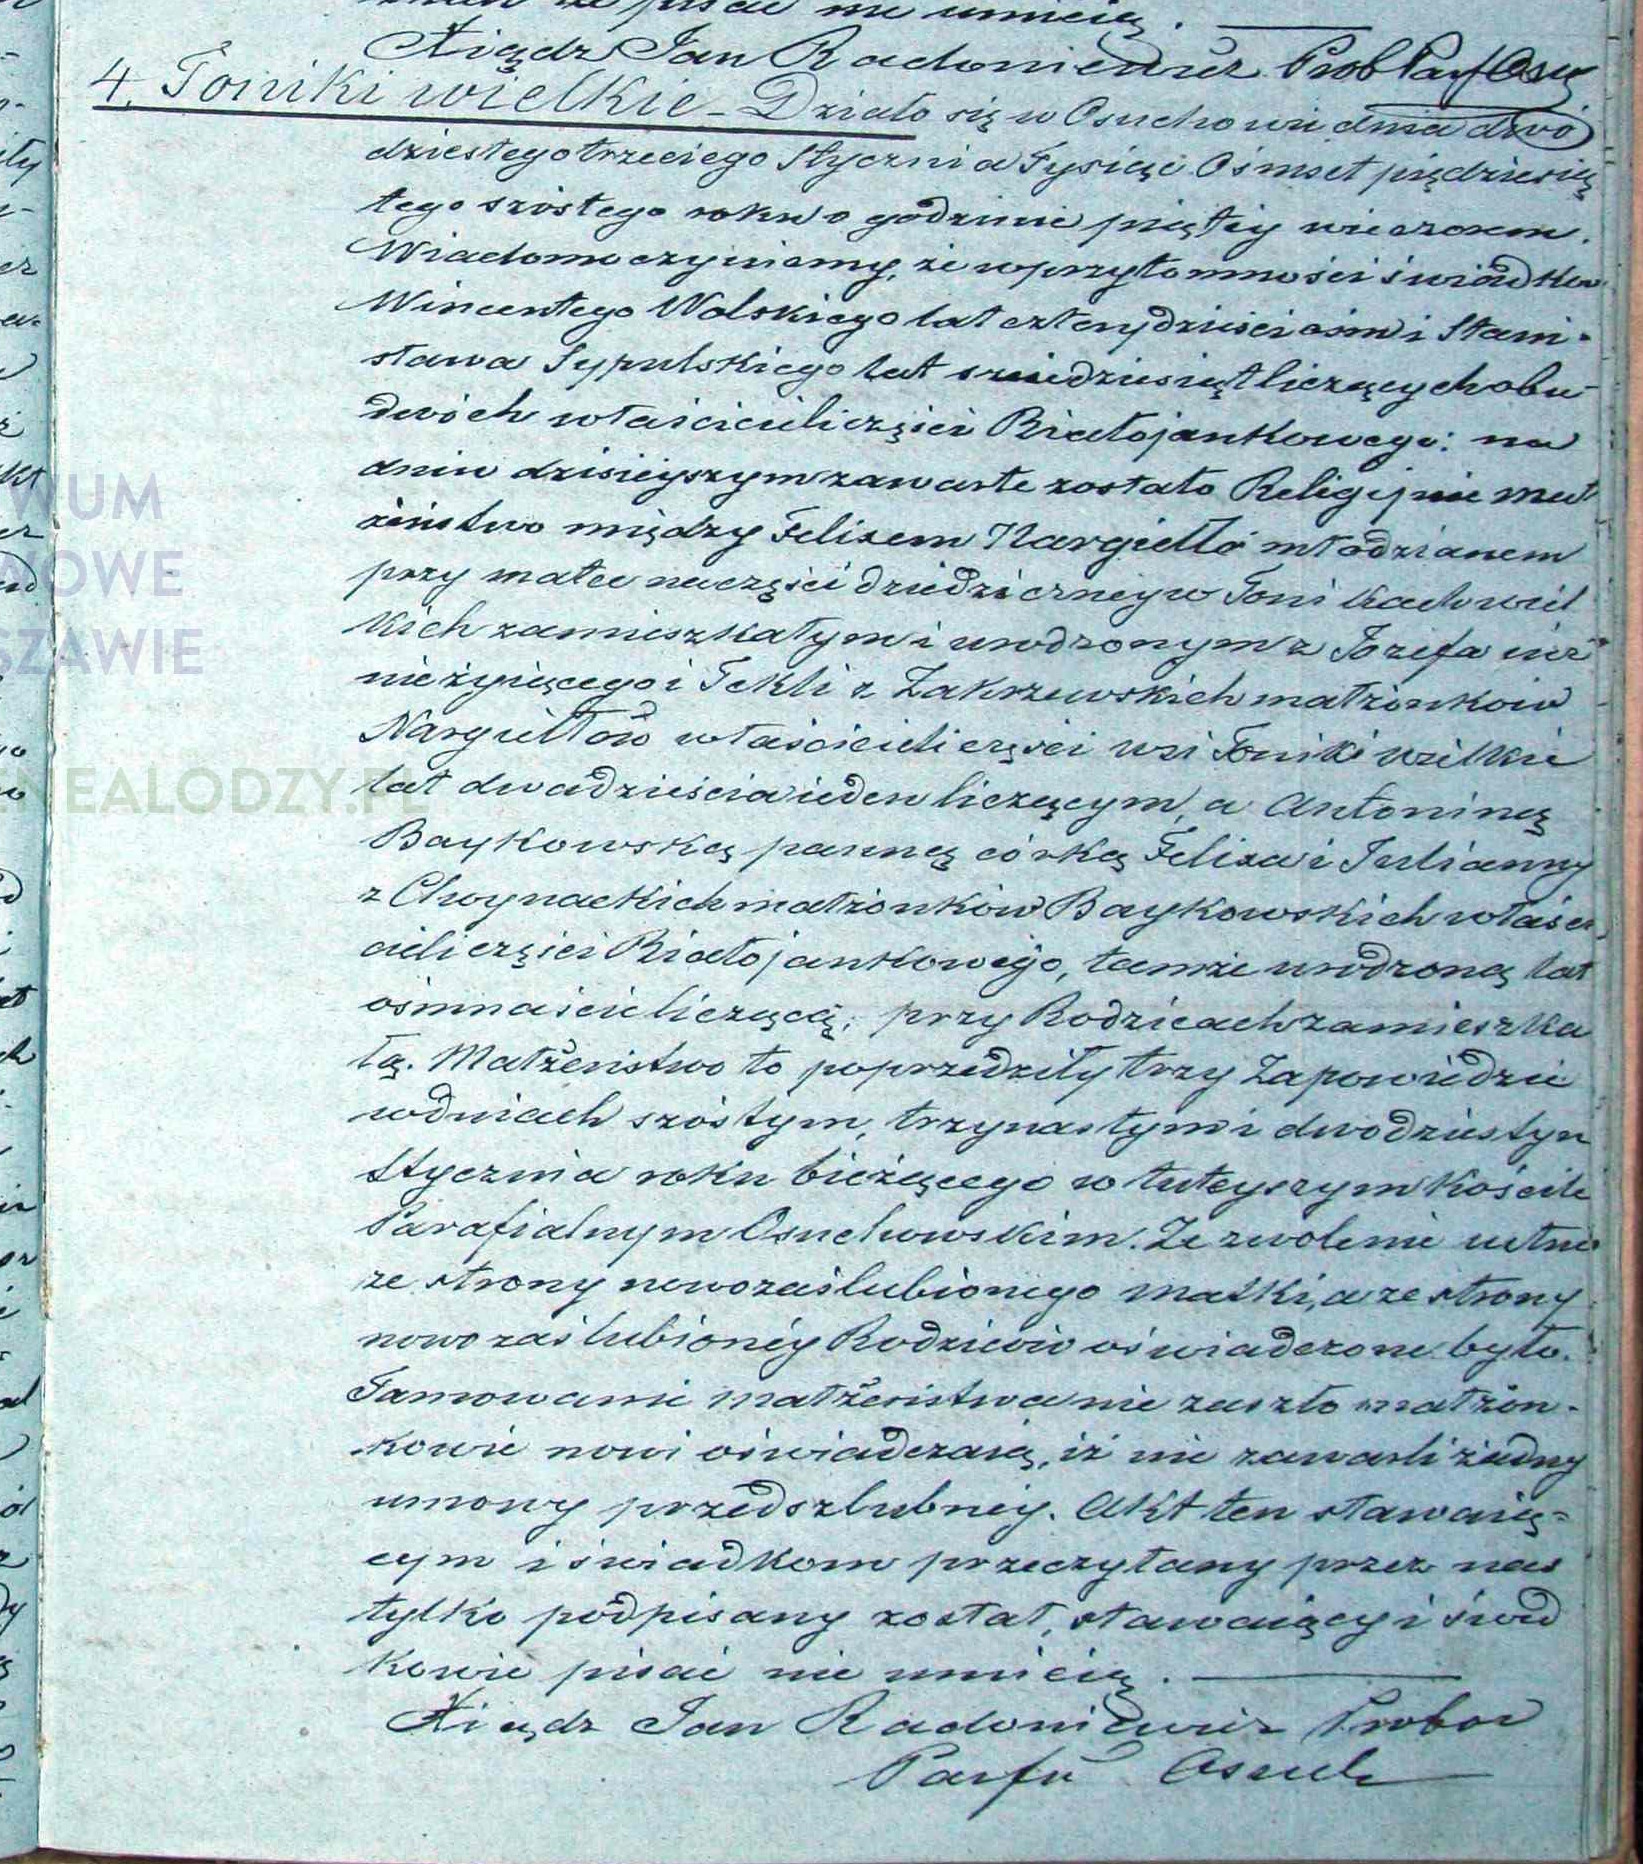 pisać nie umieią.
Xiądz Jan Radoniewicz Prob Par Osu
4. Toniki wielkie – Działo się w Osuchowie dnia dwó
dziestego trzeciego Stycznia Tysiąc Ośmset pięcdziesią
tego szóstego roku o godzinie piątéy wieczorem.
Wiadomo czyniemy, że w przytomności świadków
Wincentego Wolskiego lat czterydzieści ośm i Stani-
sława Sypulskiego lat sześdziesiąt liczących obu
dwóch właścicieli części Białojankowego; na
dniu dzisieyszym zawarte zostało Religijnie mał
żeństwo między Felixem Nargiełło młodzianem
przy matce na części dziedziczney w Tonikach wiel
kich zamieszkałym i urodzonym z Józefa iuż
nieżyiącego i Tekli z Zakrzewskich małżonków
Nargiełłów właścicieli części wsi Toniki wielkie
lat dwadzieścia ieden liczącym, a Antoniną
Baykowską panną córką Felixa i Julianny
z Choynackich małżonków Baykowskich właści
cieli części Białojankowego, tamże urodzoną lat
ośmnaście liczącą, przy Rodzicach zamieszka
łą. Małżeństwo to poprzedziły trzy Zapowiedzie
w dniach szóstym, trzynastym i dwodziestym
Stycznia roku bieżącego w tuteyszym Kościele
Parafialnym Osuchowskim. Zezwolenie ustne
ze strony nowozaślubionego matki, a ze strony
nowozaślubionéy Rodziców oświadczone było.
Tamowanie małżeństwa nie zaszło małżon-
kowie nowi oświadczaią, iż nie zawarli żadny
umowy przedszlubnéy. Akt ten stawaią-
cym i świadkom przeczytany przez nas
tylko podpisany został, stawaiący i świad
kowie pisać nie umieią.
Xiądz Jan Radoniewicz Probos
Parfii Osuch
WUM
OWE
SZAWIE
NEALODZY.PL